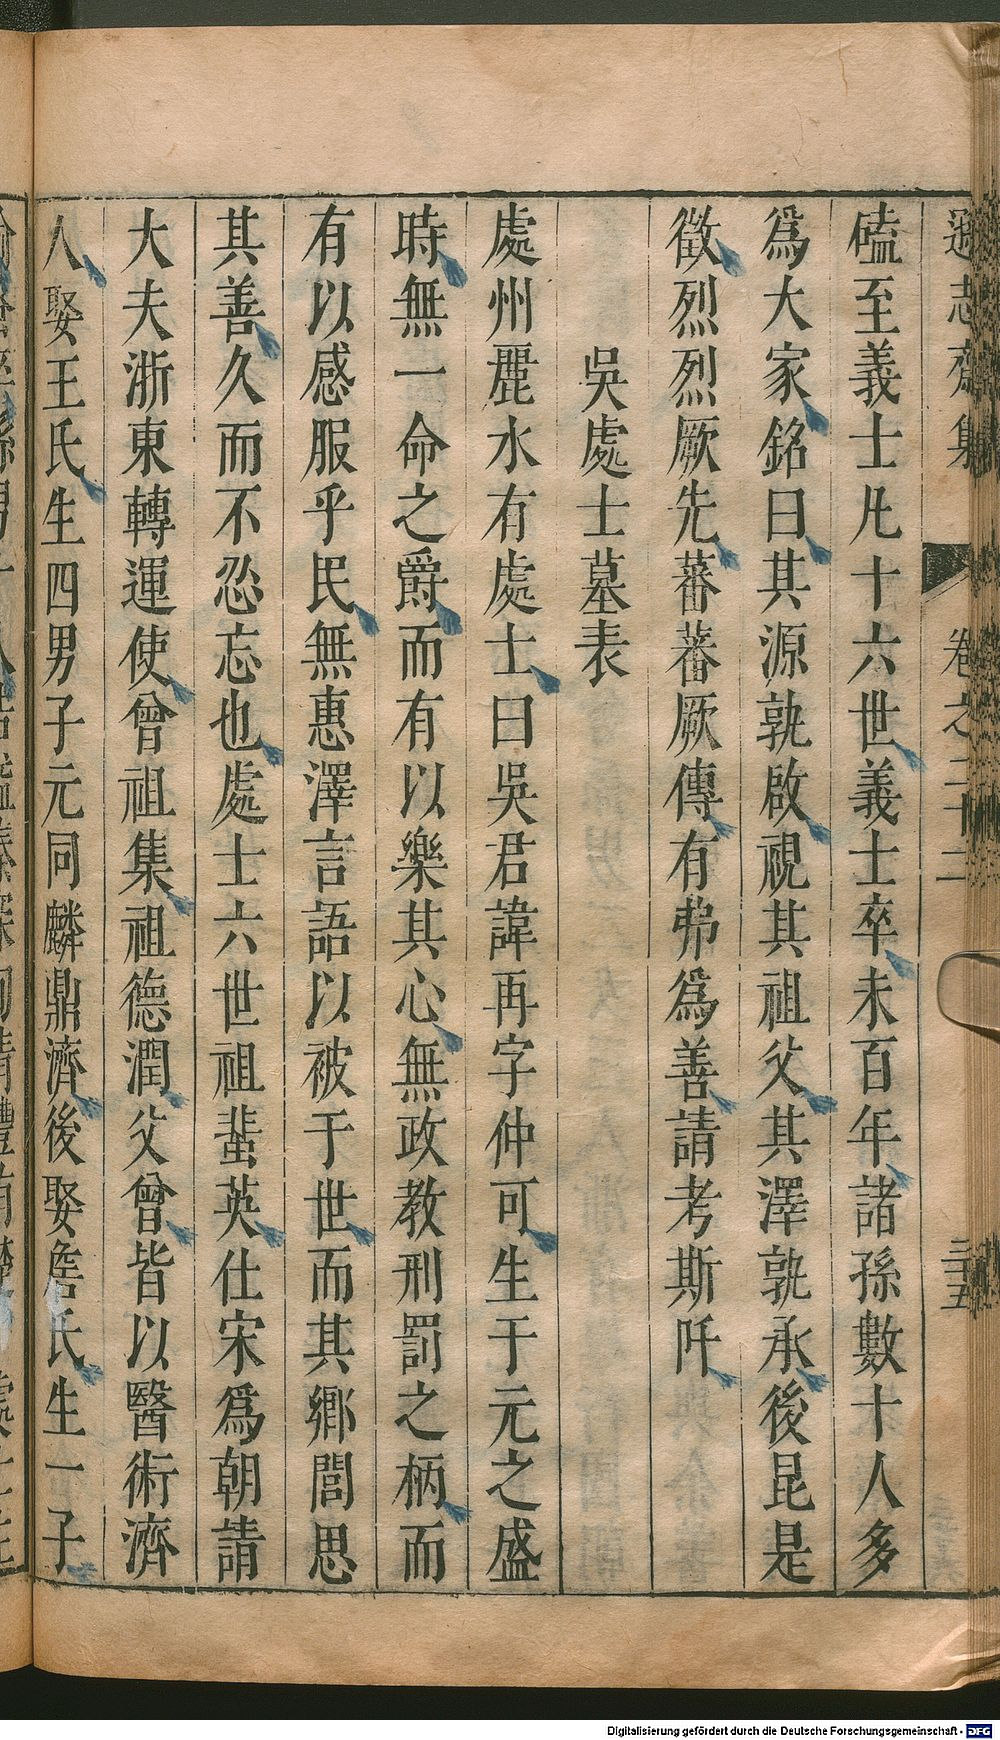 遜志齋集 卷之二十二 三十五
磕至義士凡十六世義士卒未百年諸孫數十人多
爲大家銘曰其源孰啟視其祖父其澤孰承後昆是
徵烈烈厥先蕃蕃厥傳有弗爲善請考斯阡
吳處士墓表
處州麗水有處士曰吳君諱再字仲可生于元之盛
時無一命之爵而有以樂其心無政教刑罰之柄而
有以感服乎民無惠澤言語以被于世而其鄉閭思
其善久而不忍忘也處士六世祖蜚英仕宋爲朝請
大夫浙東轉運使曾祖集祖德潤父曾皆以醫術濟
人娶王氏生四男子元同麟鼎濟後娶詹氏生一子
Digitalisierung gefördert durch die Deutsche Forschungsgemeinschaft - DFG